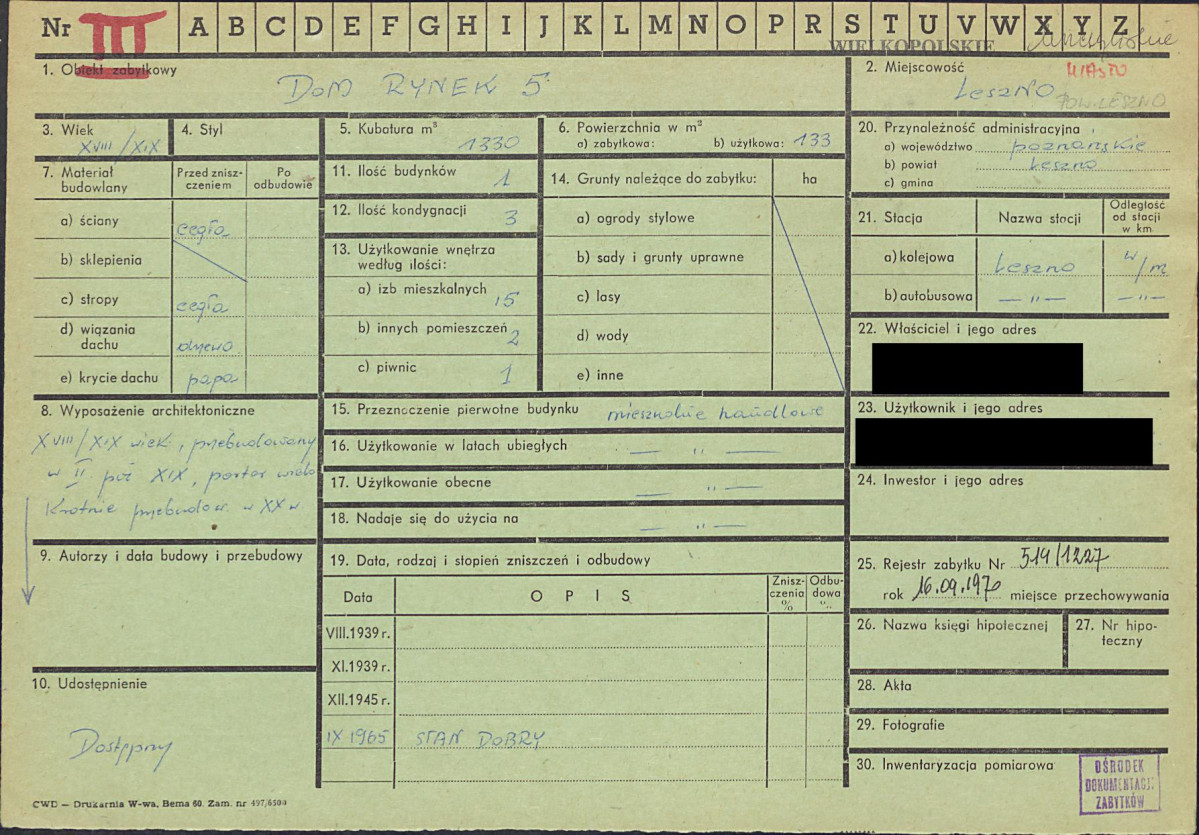 Nr III A B C D E F G H I J K L M N O P R S T U V W X Y Z
WIELKOPOLSKIE
1. Obiekt zabytkowy
DOM RYNEK 5
2. Miejscowość
MIASTO
Leszno
POW. LESZNO
3. Wiek
XVIII/XIX
4. Styl
5. Kubatura m³
1330
6. Powierzchnia w m²
a) zabytkowa: b) użytkowa: 133
7. Materiał budowlany
Przed zniszczeniem
Po odbudowie
a) ściany cegła
b) sklepienia
c) stropy cegła
d) wiązania dachu drzewo
e) krycie dachu papa
8. Wyposażenie architektoniczne
XVIII/XIX wiek, przebudowany
w II poł XIX, parter wielo
krotnie przebudow. w XX w.
9. Autorzy i data budowy i przebudowy
10. Udostępnienie
Dostępny
CWD — Drukarnia W-wa, Bema 60. Zam. nr 497/6500
11. Ilość budynków 1
12. Ilość kondygnacji 3
13. Użytkowanie wnętrza
według ilości:
a) izb mieszkalnych 15
b) innych pomieszczeń 2
c) piwnic 1
14. Grunty należące do zabytku: ha
a) ogrody stylowe
b) sady i grunty uprawne
c) lasy
d) wody
e) inne
15. Przeznaczenie pierwotne budynku mieszkalne handlowe
16. Użytkowanie w latach ubiegłych — " —
17. Użytkowanie obecne — " —
18. Nadaje się do użycia na — " —
19. Data, rodzaj i stopień zniszczeń i odbudowy
Data OPIS Zniszczenia % Odbudowa "..
VIII.1939 r.
XI.1939 r.
XII.1945 r.
IX 1965 STAN DOBRY
20. Przynależność administracyjna
a) województwo poznańskie
b) powiat Leszno
c) gmina
21. Stacja Nazwa stacji Odległość od stacji w km
a) kolejowa Leszno w/m
b) autobusowa — " — — " —
22. Właściciel i jego adres
23. Użytkownik i jego adres
24. Inwestor i jego adres
25. Rejestr zabytku Nr 514/1227
rok 16.09.1970 miejsce przechowywania
26. Nazwa księgi hipotecznej
27. Nr hipoteczny
28. Akta
29. Fotografie
30. Inwentaryzacja pomiarowa
OŚRODEK
DOKUMENTACJI
ZABYTKÓW